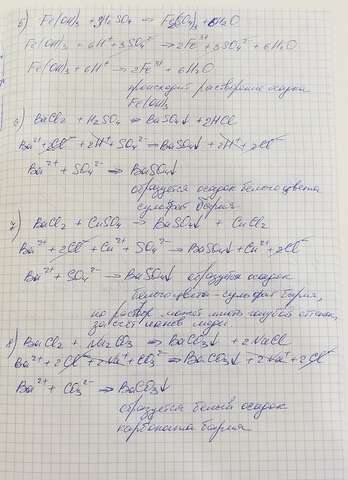 5) Fe(OH)₃ + 3H₂SO₄ → Fe₂(SO₄)₃ + 6H₂O
Fe(OH)₃ + 6H⁺ + 3SO₄²⁻ → 2Fe³⁺ + 3SO₄²⁻ + 6H₂O
Fe(OH)₃ + 6H⁺ → 2Fe³⁺ + 6H₂O
происходит растворение осадка
Fe(OH)₃
6) BaCl₂ + H₂SO₄ → BaSO₄↓ + 2HCl
Ba²⁺ + 2Cl⁻ + 2H⁺ + SO₄²⁻ → BaSO₄↓ + 2H⁺ + 2Cl⁻
Ba²⁺ + SO₄²⁻ → BaSO₄↓
образуется осадок белого цвета
сульфат бария
7) BaCl₂ + CuSO₄ → BaSO₄↓ + CuCl₂
Ba²⁺ + 2Cl⁻ + Cu²⁺ + SO₄²⁻ → BaSO₄↓ + Cu²⁺ + 2Cl⁻
Ba²⁺ + SO₄²⁻ → BaSO₄↓ образуется осадок
белого цвета - сульфат бария,
но раствор может иметь голубой оттенок,
за счет ионов меди.
8) BaCl₂ + Na₂CO₃ → BaCO₃↓ + 2NaCl
Ba²⁺ + 2Cl⁻ + 2Na⁺ + CO₃²⁻ → BaCO₃↓ + 2Na⁺ + 2Cl⁻
Ba²⁺ + CO₃²⁻ → BaCO₃↓
образуется белый осадок
карбоната бария